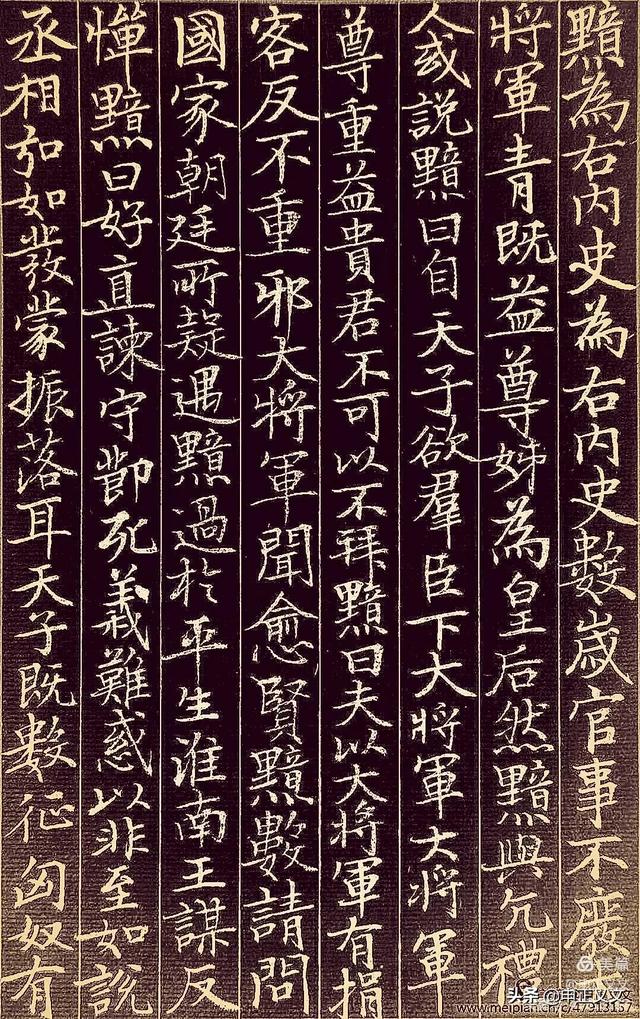 黯為右内史為右内史數歲官事不廢
將軍青既益尊姊為皇后然黯與亢禮
人或說黯曰自天子欲羣臣下大將軍大將軍
尊重益貴君不可以不拜黯曰夫以大將軍有揖
客反不重邪大將軍聞愈賢黯數請問
國家朝廷所疑遇黯過於平生淮南王謀反
憚黯曰好直諫守節死義難惑以非至如說
丞相弘如發蒙振落耳天子既數征匈奴有
美篇
头条
www.meipian.cn/c/47913157